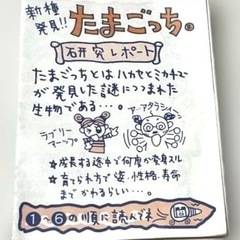 新種
発見!!
たまごっち
研究レポート
たまごっちとはハカセとミカチュウ
が発見した謎につつまれた
生物である…。
ラブリー
マーップ
アーアタクシィ〜
☆成長する途中で何度か変身スル
☆育てられ方で姿、性格、寿命
までかわるらしい…。
①〜⑥の順に読んでネ